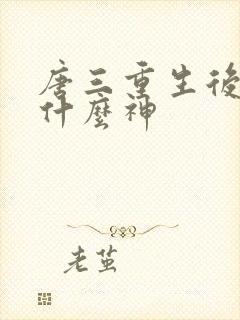 唐三重生後
什麼神
老莖